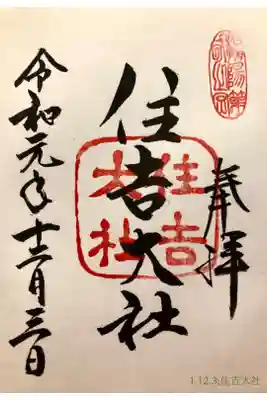 奉拝
住吉大社
住吉
大社
令和元年十二月三日
1.12.3.住吉大社